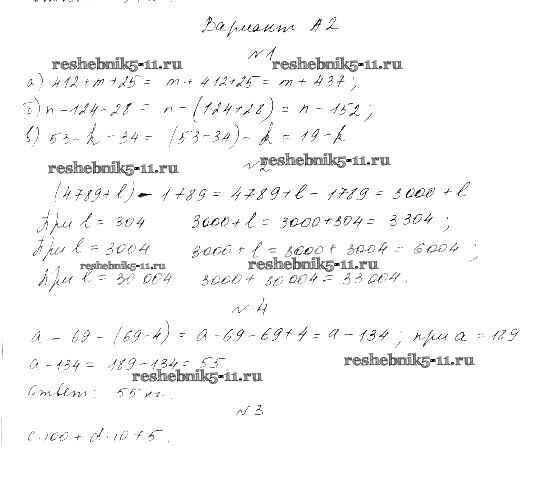 Вариант А2
№1
reshebnik5-11.ru reshebnik5-11.ru
а) 412+m+25= m+412+25= m+437;
б) n-124-28= n-(124+28)= n-152;
в) 53-k-34= (53-34)-k=19-k
reshebnik5-11.ru №2 reshebnik5-11.ru
(4789+l)-1789=4789+l-1789=3000+l
При l=304 3000+l=3000+304=3304;
При l=3004 3000+l=3000+3004=6004;
reshebnik5-11.ru reshebnik5-11.ru
При l=30 004 3000+30 004=33 004.
№4
a-69-(69-4)=a-69-69+4=a-134; при a=189
a-134=189-134=55
reshebnik5-11.ru reshebnik5-11.ru
Ответ: 55 кг.
№3
c·100+d·10+5.